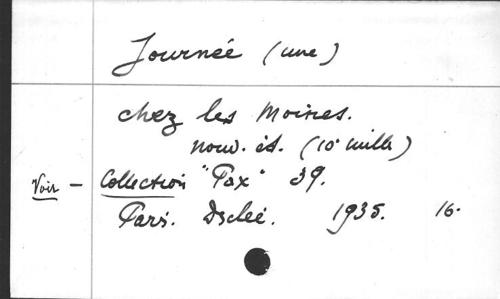 Journée (une)
chez les Moines.
nouv. éd. (10e mille)
Voir - Collection "Pax" 39.
Paris. Desclée. 1935. 16.